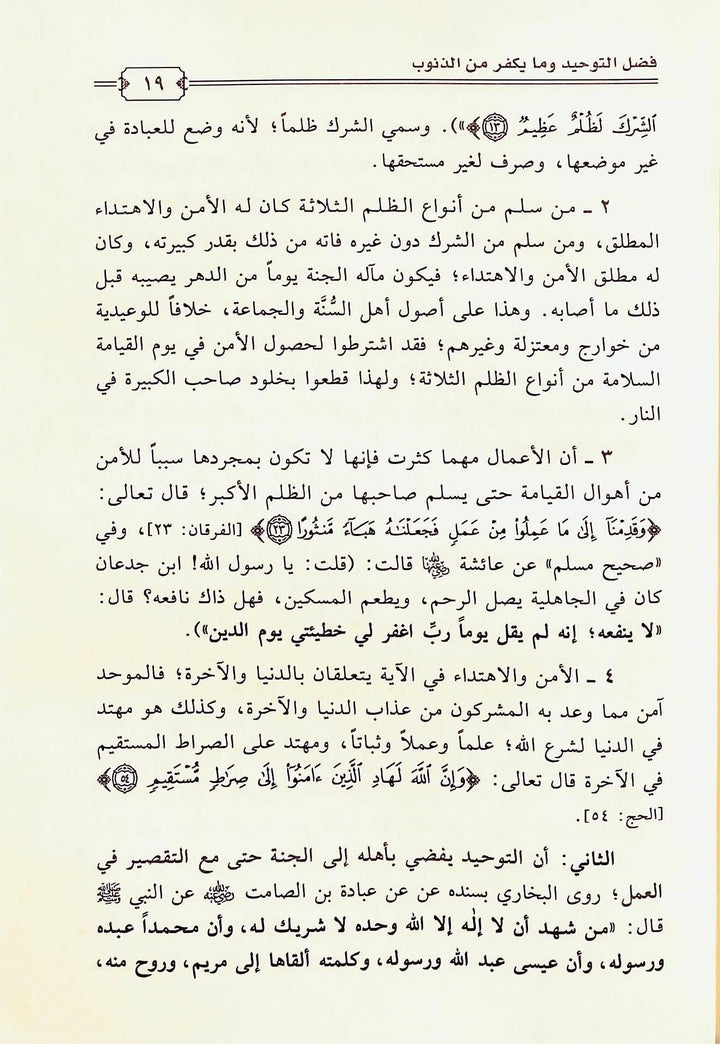 فضل التوحيد وما يكفر من الذنوب
١٩
الشِّرْكَ لَظُلْمٌ عَظِيمٌ ﴿١٣﴾»). وسمي الشرك ظلماً؛ لأنه وضع للعبادة في
غير موضعها، وصرف لغير مستحقها.
٢ ـ من سلم من أنواع الظلم الثلاثة كان له الأمن والاهتداء
المطلق، ومن سلم من الشرك دون غيره فاته من ذلك بقدر كبيرته، وكان
له مطلق الأمن والاهتداء؛ فيكون مآله الجنة يوماً من الدهر يصيبه قبل
ذلك ما أصابه. وهذا على أصول أهل السُّنَّة والجماعة، خلافاً للوعيدية
من خوارج ومعتزلة وغيرهم؛ فقد اشترطوا لحصول الأمن في يوم القيامة
السلامة من أنواع الظلم الثلاثة؛ ولهذا قطعوا بخلود صاحب الكبيرة في
النار.
٣ ـ أن الأعمال مهما كثرت فإنها لا تكون بمجردها سبباً للأمن
من أهوال القيامة حتى يسلم صاحبها من الظلم الأكبر؛ قال تعالى:
﴿وَقَدِمْنَآ إِلَىٰ مَا عَمِلُوا۟ مِنْ عَمَلٍ فَجَعَلْنَـٰهُ هَبَآءً مَّنثُورًا ٢٣﴾ [الفرقان: ٢٣]، وفي
«صحيح مسلم» عن عائشة رضي الله عنها قالت: (قلت: يا رسول الله! ابن جدعان
كان في الجاهلية يصل الرحم، ويطعم المسكين، فهل ذاك نافعه؟ قال:
«لا ينفعه؛ إنه لم يقل يوماً ربِّ اغفر لي خطيئتي يوم الدين»).
٤ ـ الأمن والاهتداء في الآية يتعلقان بالدنيا والآخرة؛ فالموحد
آمن مما وعد به المشركون من عذاب الدنيا والآخرة، وكذلك هو مهتد
في الدنيا لشرع الله؛ علماً وعملاً وثباتاً، ومهتد على الصراط المستقيم
في الآخرة قال تعالى: ﴿وَإِنَّ ٱللَّهَ لَهَادِ ٱلَّذِينَ ءَامَنُوٓا۟ إِلَىٰ صِرَٰطٍ مُّسْتَقِيمٍ ٥٤﴾
[الحج: ٥٤].
الثاني: أن التوحيد يفضي بأهله إلى الجنة حتى مع التقصير في
العمل؛ روى البخاري بسنده عن عن عبادة بن الصامت رضي الله عنه عن النبي ﷺ
قال: «من شهد أن لا إلٰه إلا الله وحده لا شريك له، وأن محمداً عبده
ورسوله، وأن عيسى عبد الله ورسوله، وكلمته ألقاها إلى مريم، وروح منه،